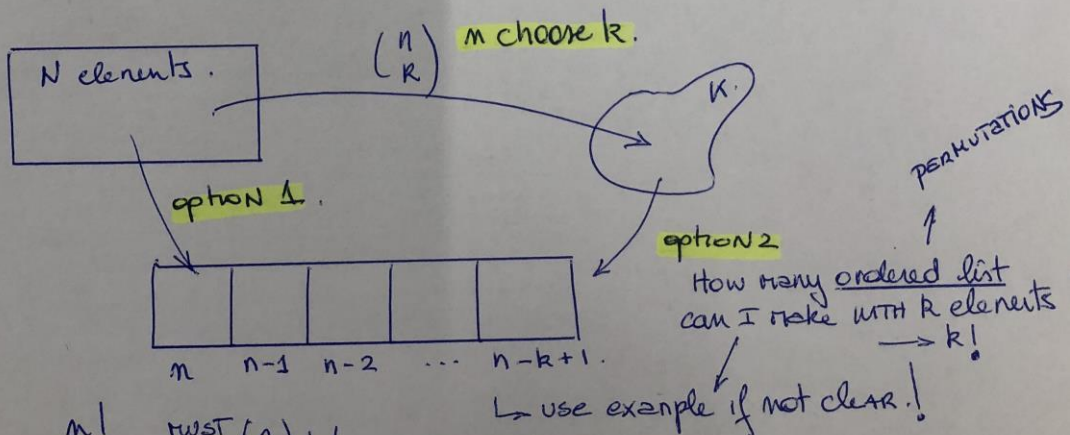 N elements.
(n
k) n choose k.
K.
PERMUTATIONS
option 1.
option 2
How many ordered list
can I make WITH k elements
→ k!
n n-1 n-2 ... n-k+1.
↳ use example if not cleAR!
n! MUST (n)